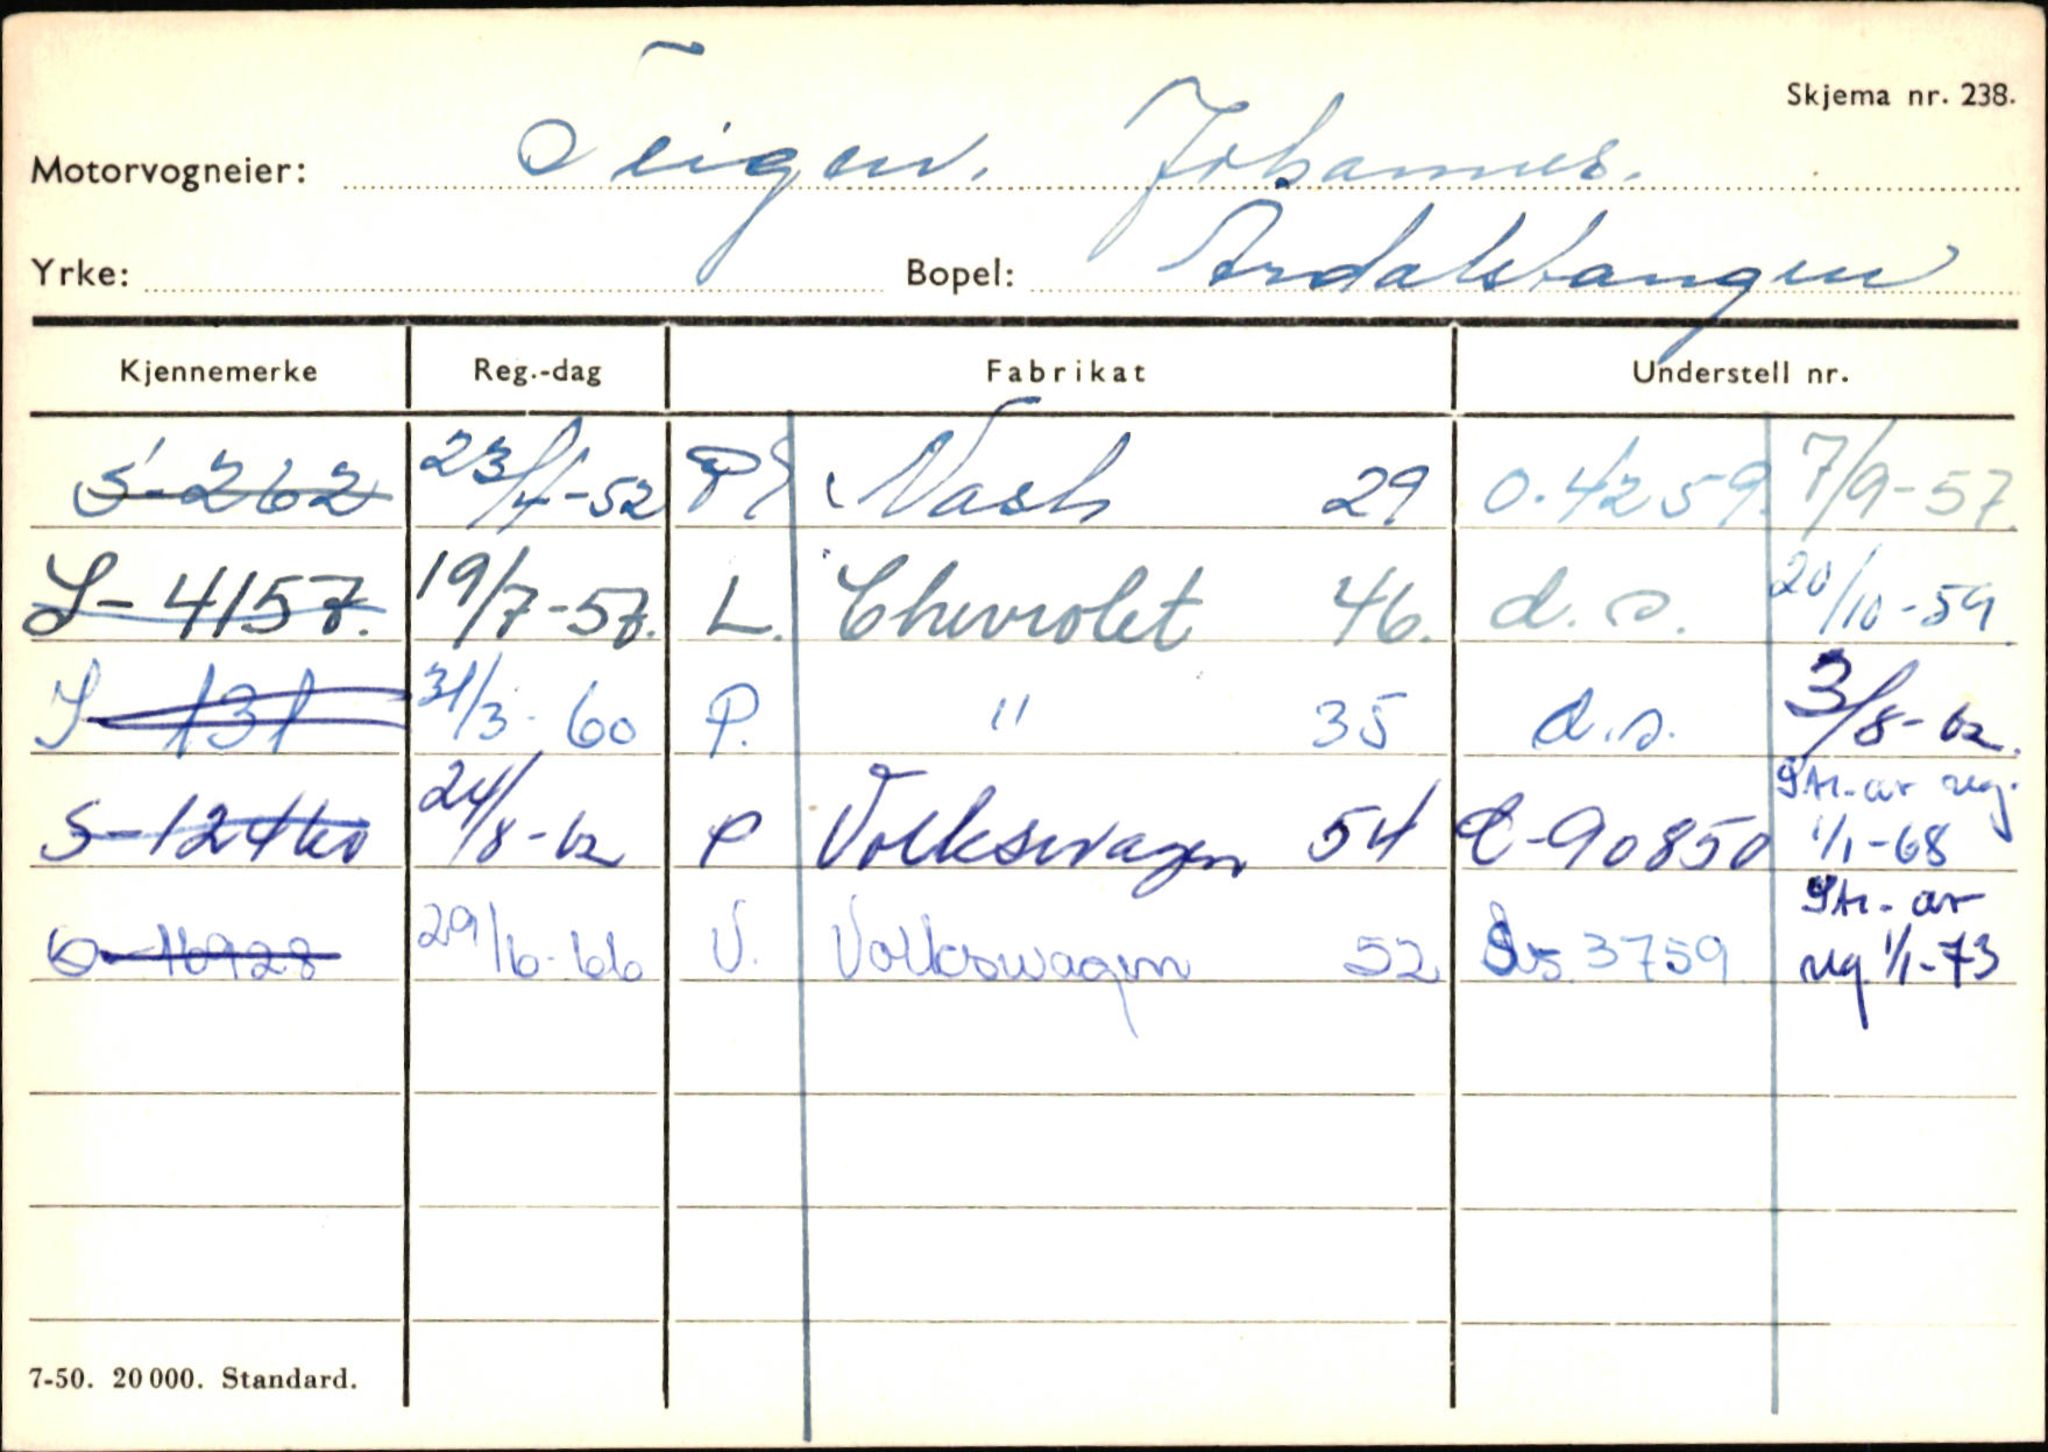 Skjema nr. 238.
Motorvogneier: Teigen. Johannes.
Yrke: Bopel: Årdalstangen
Kjennemerke Reg.-dag Fabrikat Understell nr.
S-262 23/4-52 P Nash 29 0.4259. 7/9-57.
S-4157. 19/7-57. L. Chevrolet 46. d.s. 20/10-59
S-131 31/3-60 P. " 35 d.s. 3/8-62.
S-12460 24/8-62 P Volkswagen 54 C-90850 Str. av reg. 1/1-68
S-16928 29/6-66 V. Volkswagen 52 3759 Str. av reg. 1/1-73
7-50. 20 000. Standard.